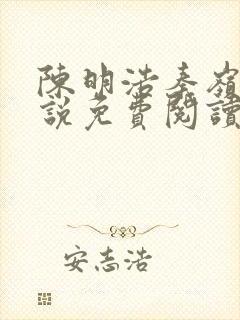 陳明浩秦嶺
說免費閱讀
安志浩